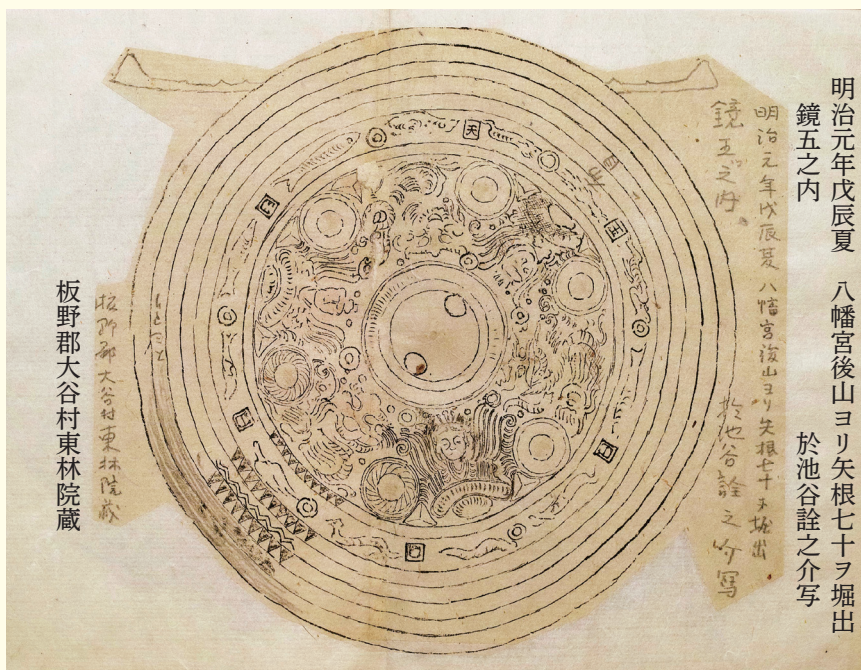 明治元年戊辰夏　八幡宮後山ヨリ矢根七十ヲ堀出
鏡五之内　於池谷詮之介写
明治元年戊辰夏八幡宮後山ヨリ矢根七十ヲ堀出
鏡五之内　於池谷詮之介寫
天
板野郡大谷村東林院蔵
板野郡大谷村東林院蔵